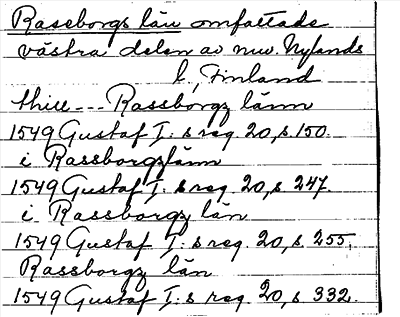 Raseborgs län omfattade
västra delen av nuv. Nylands
l, Finland
thill --- Rassborgz länn
1549 Gustaf I: s reg. 20, s 150.
i Rassborgzlänn
1549 Gustaf I: s reg. 20, s 247.
i Rassborgz län
1549 Gustaf I: s reg. 20, s 255.
Rassborgz län
1549 Gustaf I: s reg. 20, s 332.